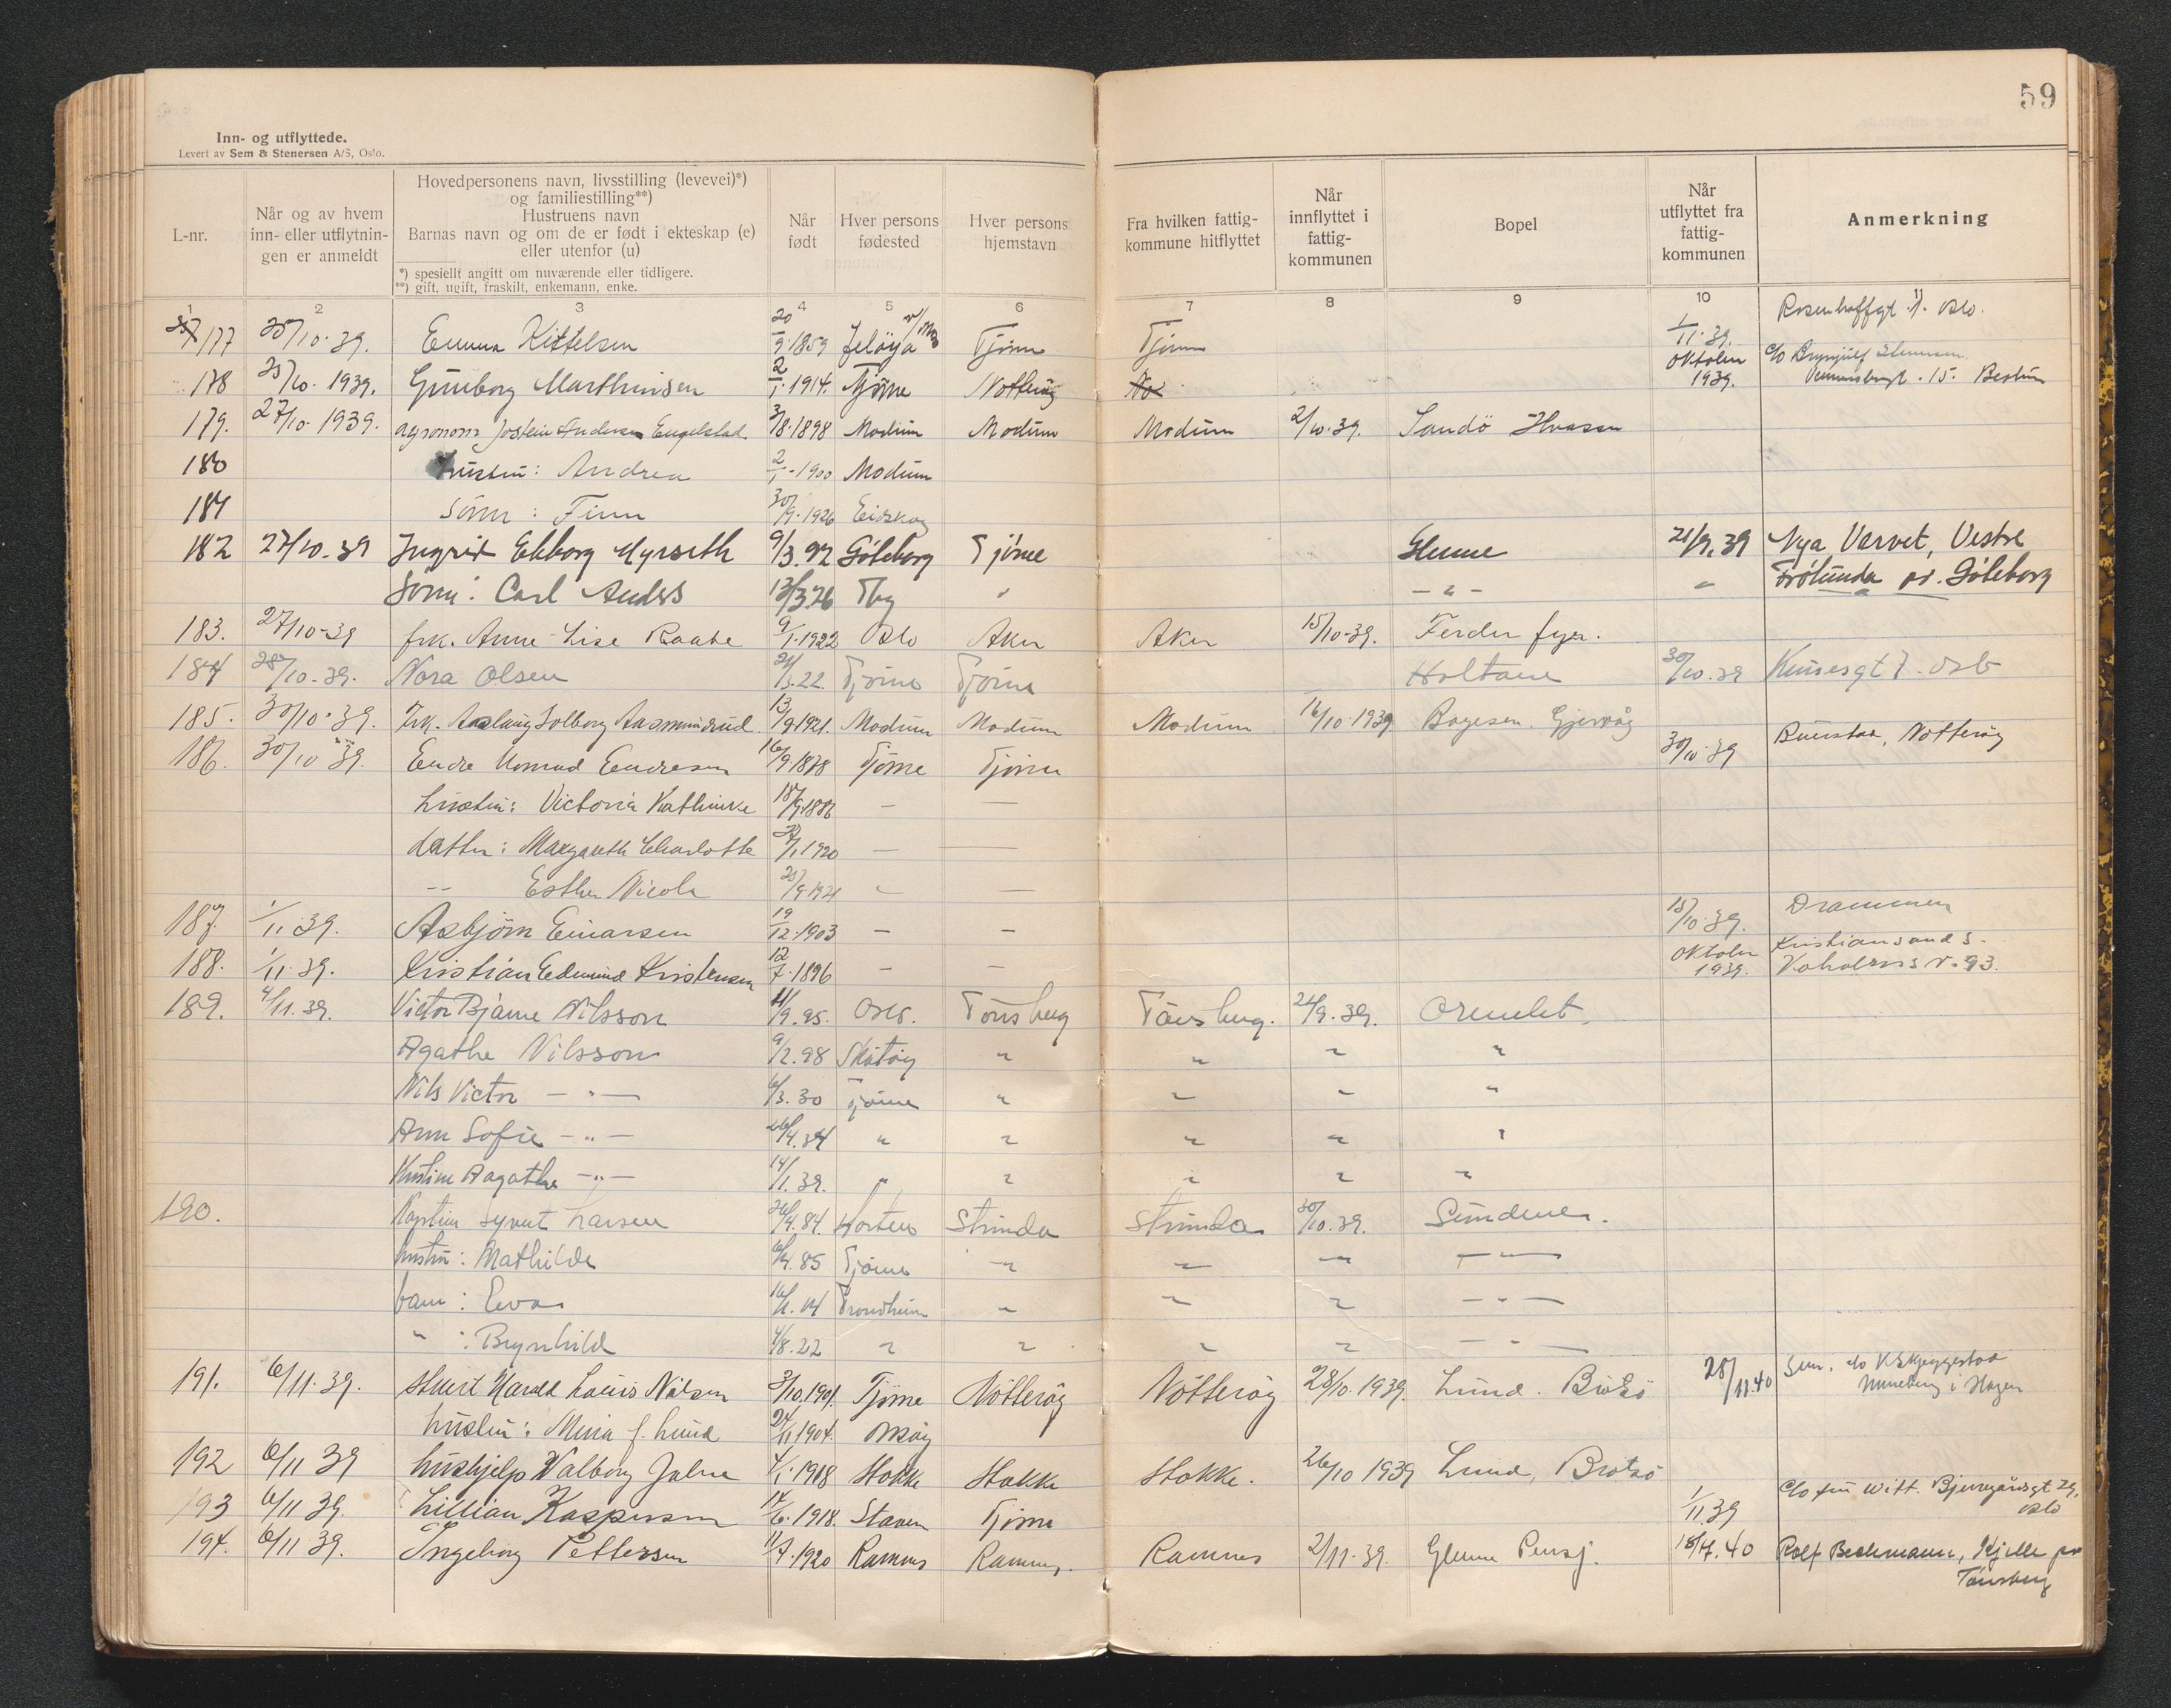 59
Inn- og utflyttede.
Levert av Sem & Stenersen A/S, Oslo.
L-nr.
Når og av hvem inn- eller utflytnin-gen er anmeldt
Hovedpersonens navn, livsstilling (levevei)*)
og familiestilling**)
Hustruens navn
Barnas navn og om de er født i ekteskap (e)
eller utenfor (u)
*) spesiellt angitt om nuværende eller tidligere.
**) gift, ugift, fraskilt, enkemann, enke.
Når født
Hver persons fødested
Hver persons hjemstavn
Fra hvilken fattig-kommune hitflyttet
Når innflyttet i fattig-kommunen
Bopel
Når utflyttet fra fattig-kommunen
Anmerkning
1 2 3 4 5 6 7 8 9 10 11
177 25/10-39. Emma Kittelsen 20/9-1859 Jeløya Tjöme Tjöme 1/11-39. Oslo.
178 25/10-1939. Gunborg Marthinsen 2/1-1914. Tjöme Nötteröy oktober 1939. c/o Brynjulf 15. Bestun
179. 27/10-1939. agronom Jostein Andersen Engelstad 3/8-1898 Modum Modum Modum 2/10-39. Sandö Hvasser
180 hustru: Andrea 2/1-1900 Modum
181 sönn: Finn 30/9-1926 Eidskog
182 27/10-39 Ingrid Ekborg Myrseth 9/3.92 Göteborg Tjöme Glenne 21/9.39 Nya Varvet, Vestre
Sönn: Carl Anders 13/3.26 Tbg " - " - " Frölunda pr. Göteborg
183. 27/10-39 frk. Anne-Lise Raabe 9/1-1922 Oslo Aker Aker 15/10-39. Ferder fyr.
184 28/10-39. Nora Olsen 24/3.22. Tjöme Tjöme Holtane 30/10.39 7. Oslo
185. 30/10-39. Frk. Aaslaug Solborg Aasmundrud 13/9-1921. Modum Modum Modum 16/10-1939 Bogesen. Gjervåg
186. 30/10-39. Endre Konrad Endresen 16/9 1878 Tjöme Tjöme 30/10-39 Buerstad, Nötteröy
hustru: Victoria Kathinka 18/9-1886 — —
datter: Margareth Charlotte 1920 — —
-- Esther Nicola 25/9-1921 — —
187. 1/11-39. Asbjörn Einarsen 19/12-1903 — — 15/10-39. Drammen
188. 1/11-39. Kristian Edmund Kristensen 12/7-1896 — — oktober 1939. Kristiansand S.
93.
189. 4/11.39. Victor Bjarne Nilsson 11/9.95. Oslo. Tönsberg Tönsberg. 21/9.39. Ormelet.
Agathe Nilsson 9/2.98 Skåtöy " " " "
Nils Victor - " - 6/3.30 Tjöme " " " "
Ann Sofie - " - 26/4.34 " " " " "
Kristine Aagathe - " - 14/1.39. " " " " "
190. Kaptein Syvert Larsen 26/4.84. Horten Strinda Strinda 30/10.39. Sundene.
hustru: Mathilde 6/4.85 Tjöme " " " "
barn: Eva Trondheim " " " "
" : Brynhild 4/8.22 " " " " "
191. 6/11-39. Harald Louis Nilsen 3/10.1901. Tjöme Nötteröy Nötteröy 28/10-1939. Lund. Brötsö 28/11.40 Sem. c/o K. Skjeggestad
Unneberg i Hagen
hustru: Mina f. Lund 24/11 1904. Onsöy
192 6/11 39 hushjelp Valborg Jahre 4/1-1918 Stokke Stokke Stokke. 26/10 1939 Lund, Brötsö
193 6/11 39. Lillian Kaspersen 14/6-1918. Stavern Tjöme 1/11.39 c/o fru Witt. Bjerregårdsgt 29. Oslo
194. 6/11 39. Ingeborg Pettersen 11/7-1920 Ramnes Ramnes. Ramnes 2/11-39. Glenne Pensj. 18/4.40 Rolf Beckmann, Kjelle pr
Tönsberg